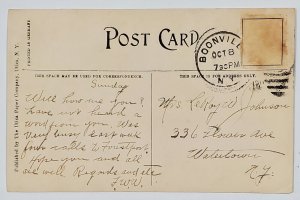 POST CARD
THIS SPACE MAY BE USED FOR CORRESPONDENCE.
THIS SPACE IS FOR ADDRESS ONLY.
PRINTED IN GERMANY
Published by the Utica Paper Company, Utica, N. Y.
BOONVILLE
OCT 8
7 30 PM
N.Y.
Sunday
Well how are you?
have not heard a
word from you. Was
very busy last week
four calls to Forestport
Hope you and all
are well Regards
Mrs Johnson
336 Flower Ave
Watertown
N.Y.